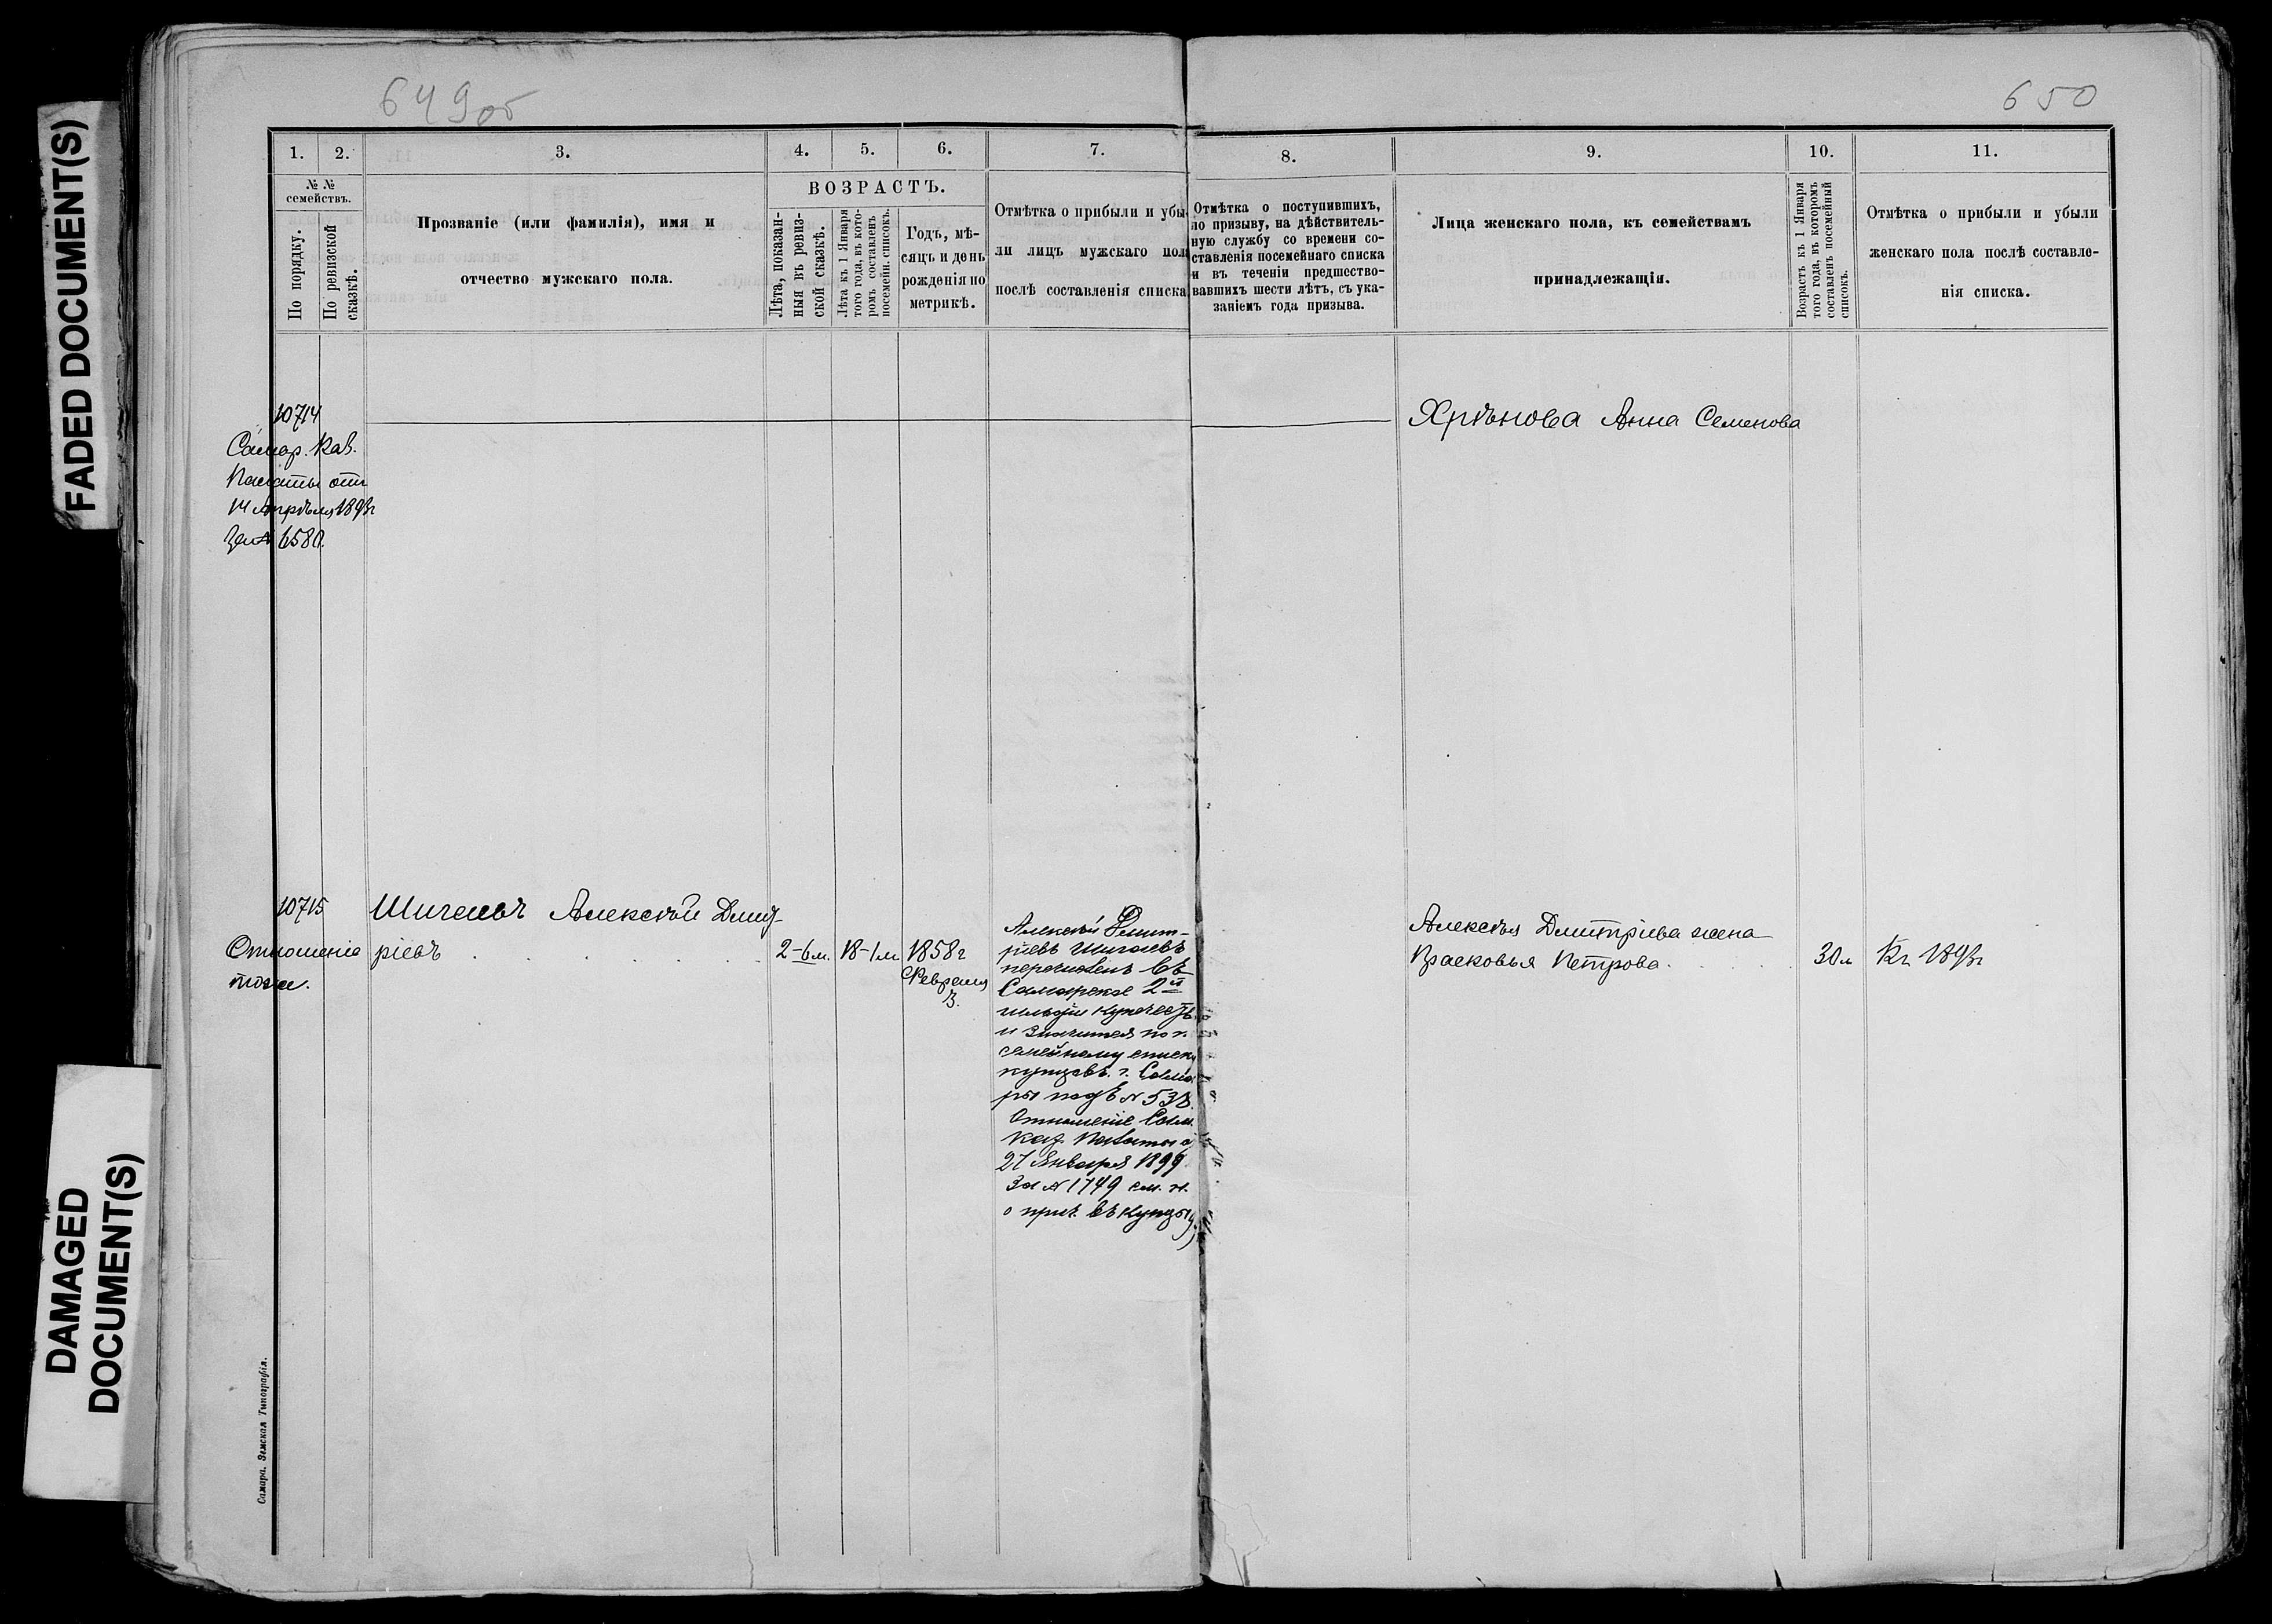 FADED DOCUMENT(S)
DAMAGED
DOCUMENT(S)
649об
650
1. 2. 3. 4. 5. 6. 7. 8. 9. 10. 11.
№ №
семействъ.
По порядку.
По ревизской
сказкѣ.
Прозваніе (или фамилія), имя и
отчество мужскаго пола.
ВОЗРАСТЪ.
Лѣта, показан-
ныя въ ревиз-
ской сказкѣ.
Лѣта къ 1 Января
того года, въ кото-
ромъ составленъ
посемейн. списокъ.
Годъ, мѣ-
сяцъ и день
рожденія по
метрикѣ.
Отмѣтка о прибыли и убы-
ли лицъ мужскаго пола
послѣ составленія списка
Отмѣтка о поступившихъ,
по призыву, на дѣйствитель-
ную службу со времени со-
ставленія посемейнаго списка
и въ теченіи предшество-
вавшихъ шести лѣтъ, съ ука-
заніемъ года призыва.
Лица женскаго пола, къ семействамъ
принадлежащія.
Возрастъ къ 1 Января
того года, въ которомъ
составленъ посемейный
списокъ.
Отмѣтка о прибыли и убыли
женскаго пола послѣ составле-
нія списка.
10714
Самар. Каз.
Палаты отъ
14 Апрѣля 1893г
за № 6580.
Хрѣнова Анна Семенова
10715
Отношеніе
тоже.
Алексѣй Дмит-
ріевъ
2-6м. 18-1м 1858г
Февраля
3.
Алексѣй Дмит-
ріевъ
перечисленъ въ
Самарское 2й
гильдіи купечеств
и значится по по
семейному списку
купцовъ г. Сама
ры подъ №
Отношеніе Сам.
Каз. Палаты о
27 Января 1899
За № 1749 см. н.
о прич. въ купцы
Алексѣя Дмитріева жена
Прасковья Петрова
30л
Къ 1893г
Самара. Земская Типографія.